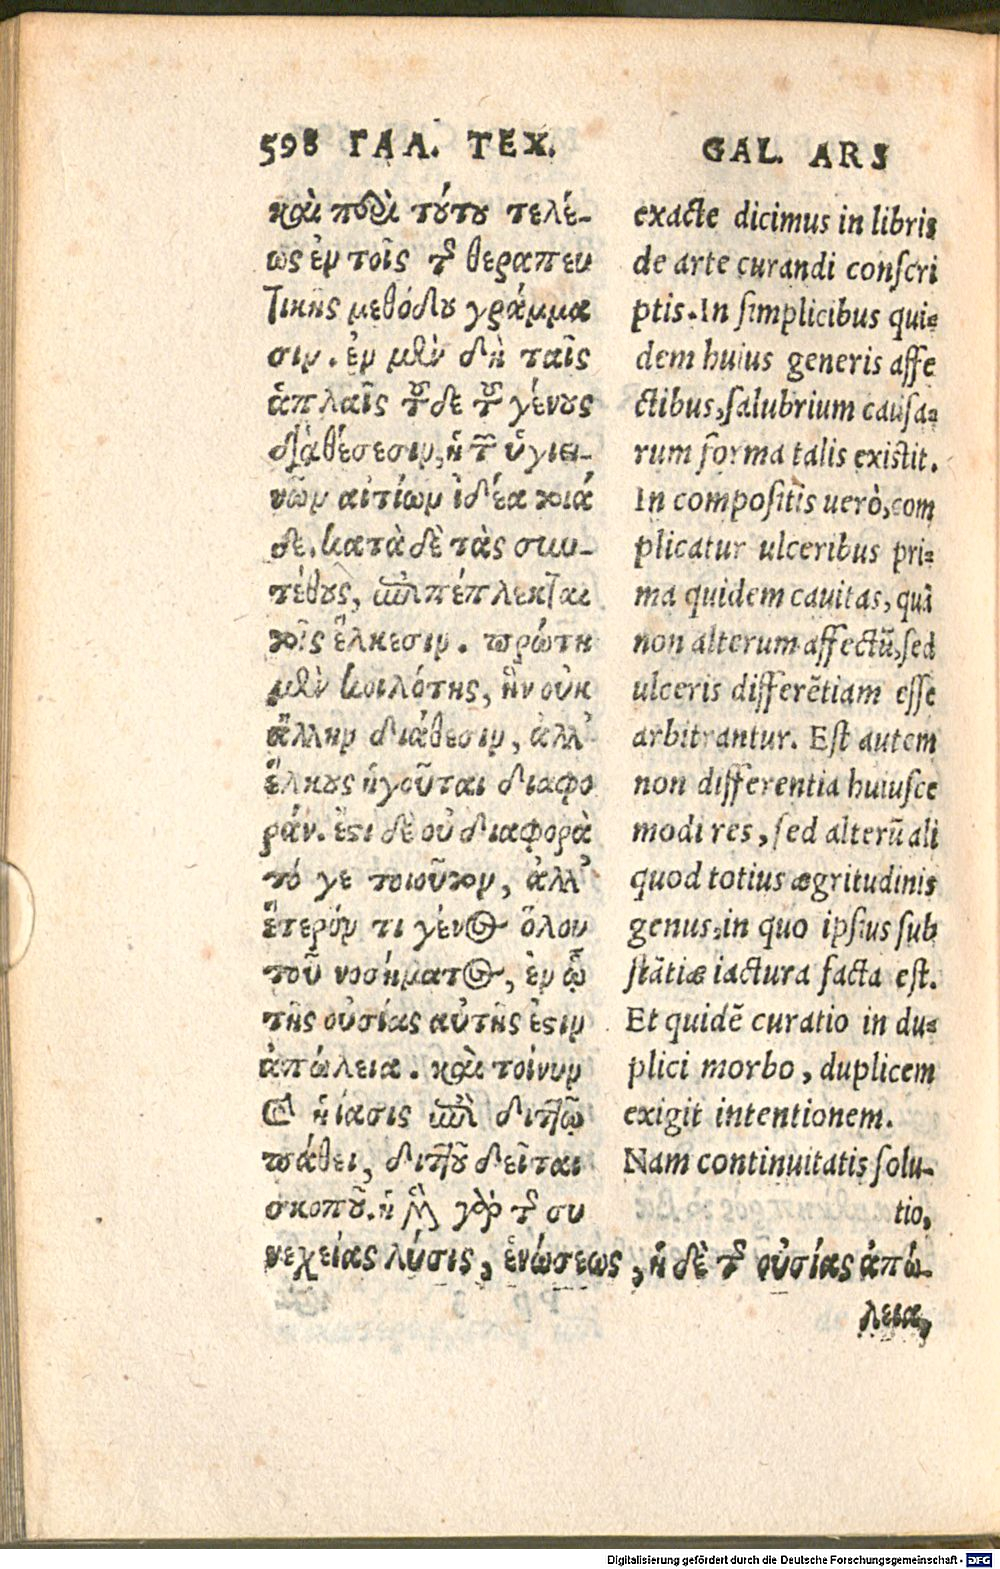 598 ΓΑΛ. ΤΕΧ.
καὶ περὶ τούτου τελέ-
ως ἐν τοῖς τῆς θεραπευ
τικῆς μεθόδου γράμμα
σιν. ἐν μὲν δὴ ταῖς
ἁπλαῖς τοῦδε τοῦ γένους
διαθέσεσιν, ἡ τῶν ὑγιει-
νῶν αἰτίων ἰδέα τοιά
δε. κατὰ δὲ τὰς συν-
θέτους, ἐπιπέπλεκται
τοῖς ἕλκεσιν. πρώτη
μὲν κοιλότης, ἣν οὐκ
ἄλλην διάθεσιν, ἀλλ᾽
ἕλκους ἡγοῦται διαφο
ράν. ἔστι δὲ οὐ διαφορὰ
τό γε τοιοῦτον, ἀλλ᾽
ἕτερόν τι γένος ὅλου
τοῦ νοσήματος, ἐν ᾧ
τῆς οὐσίας αὐτῆς ἐστιν
ἀπώλεια. καὶ τοίνυν
καὶ ἡ ἴασις ἐπὶ διττῷ
πάθει, διττοῦ δεῖται
σκοποῦ. ἡ μὲν γὰρ τῆς συ
νεχείας λύσις, ἑνώσεως, ἡ δὲ τῆς οὐσίας ἀπώ-
λεια,
GAL. ARS
exacte dicimus in libris
de arte curandi conscri
ptis. In simplicibus qui-
dem huius generis affe
ctibus, salubrium causa-
rum forma talis existit.
In compositis uerò, com
plicatur ulceribus pri-
ma quidem cauitas, quã
non alterum affectũ, sed
ulceris differẽtiam esse
arbitrantur. Est autem
non differentia huiusce
modi res, sed alterũ ali
quod totius ægritudinis
genus, in quo ipsius sub
stãtiæ iactura facta est.
Et quidẽ curatio in du-
plici morbo, duplicem
exigit intentionem.
Nam continuitatis solu-
tio,
Digitalisierung gefördert durch die Deutsche Forschungsgemeinschaft - DFG